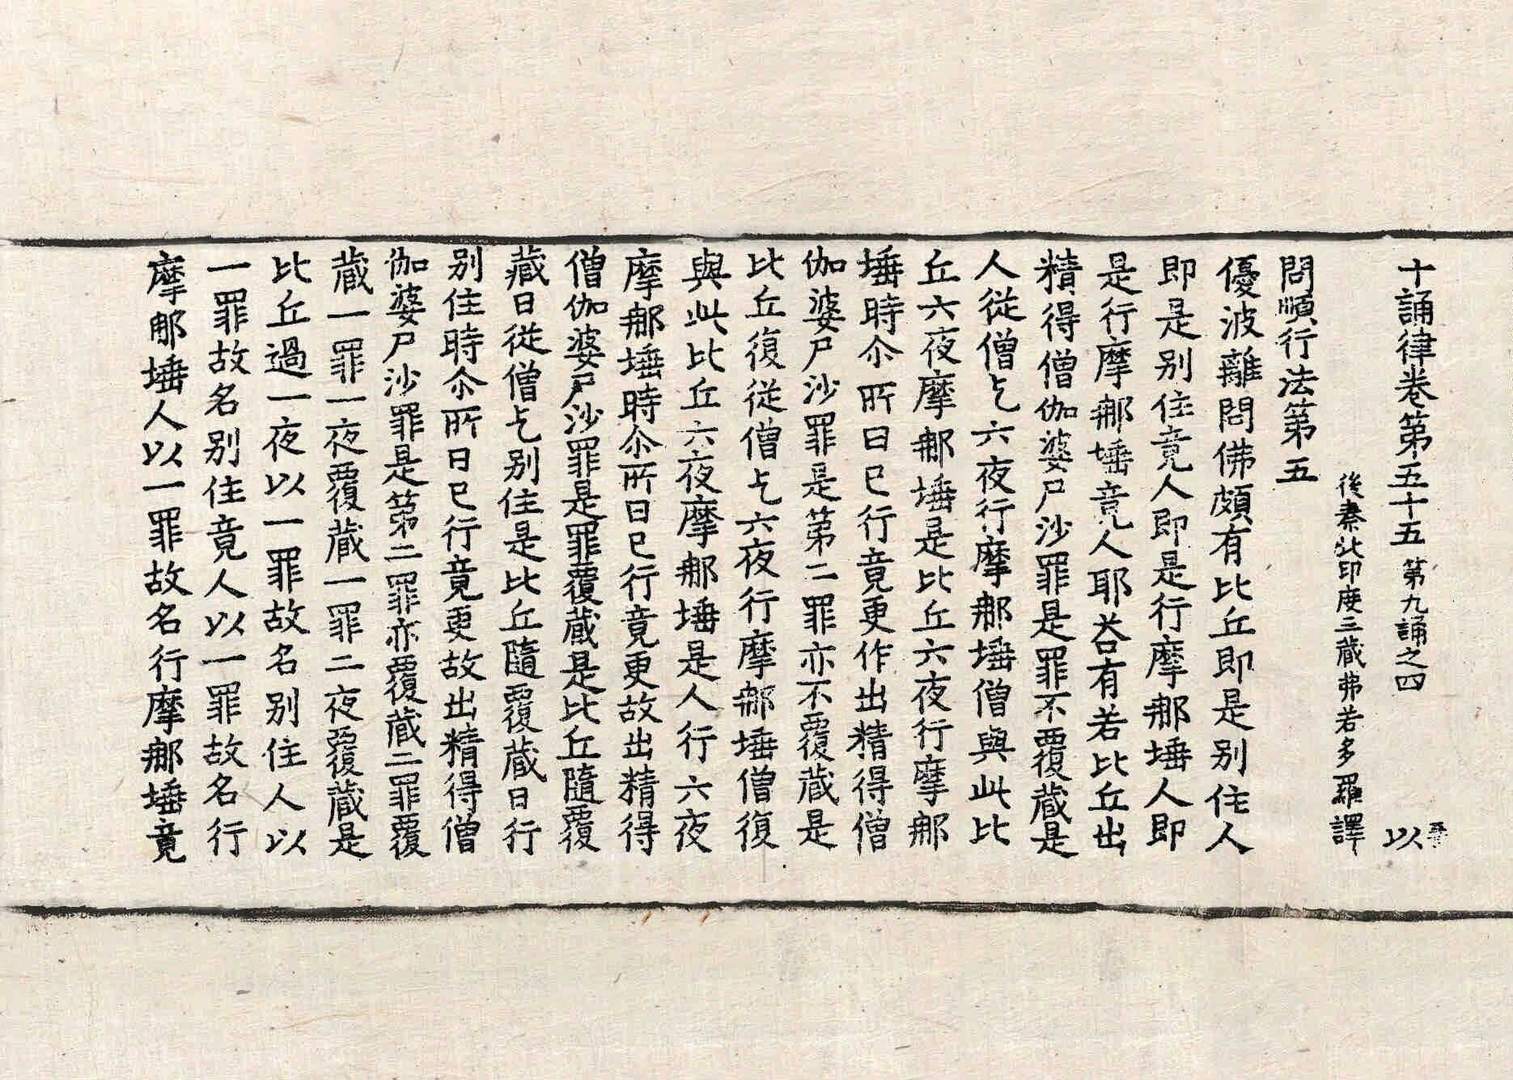 十誦律卷第五十五 第九誦之四 以
後秦北印度三藏弗若多羅譯
問順行法第五
優波離問佛頗有比丘即是別住人
即是別住竟人即是行摩那埵人即
是行摩那埵竟人耶荅有若比丘出
精得僧伽婆尸沙罪是罪不覆藏是
人從僧乞六夜行摩那埵僧與此比
丘六夜摩那埵是比丘六夜行摩那
埵時尒所日已行竟更作出精得僧
伽婆尸沙罪是第二罪亦不覆藏是
比丘復從僧乞六夜行摩那埵僧復
與此比丘六夜摩那埵是人行六夜
摩那埵時尒所日已行竟更故出精得
僧伽婆尸沙罪是罪覆藏是比丘隨覆
藏日從僧乞別住是比丘隨覆藏日行
別住時尒所日已行竟更故出精得僧
伽婆尸沙罪是第二罪亦覆藏二罪覆
藏一罪一夜覆藏一罪二夜覆藏是
比丘過一夜以一罪故名別住人以
一罪故名別住竟人以一罪故名行
摩那埵人以一罪故名行摩那埵竟